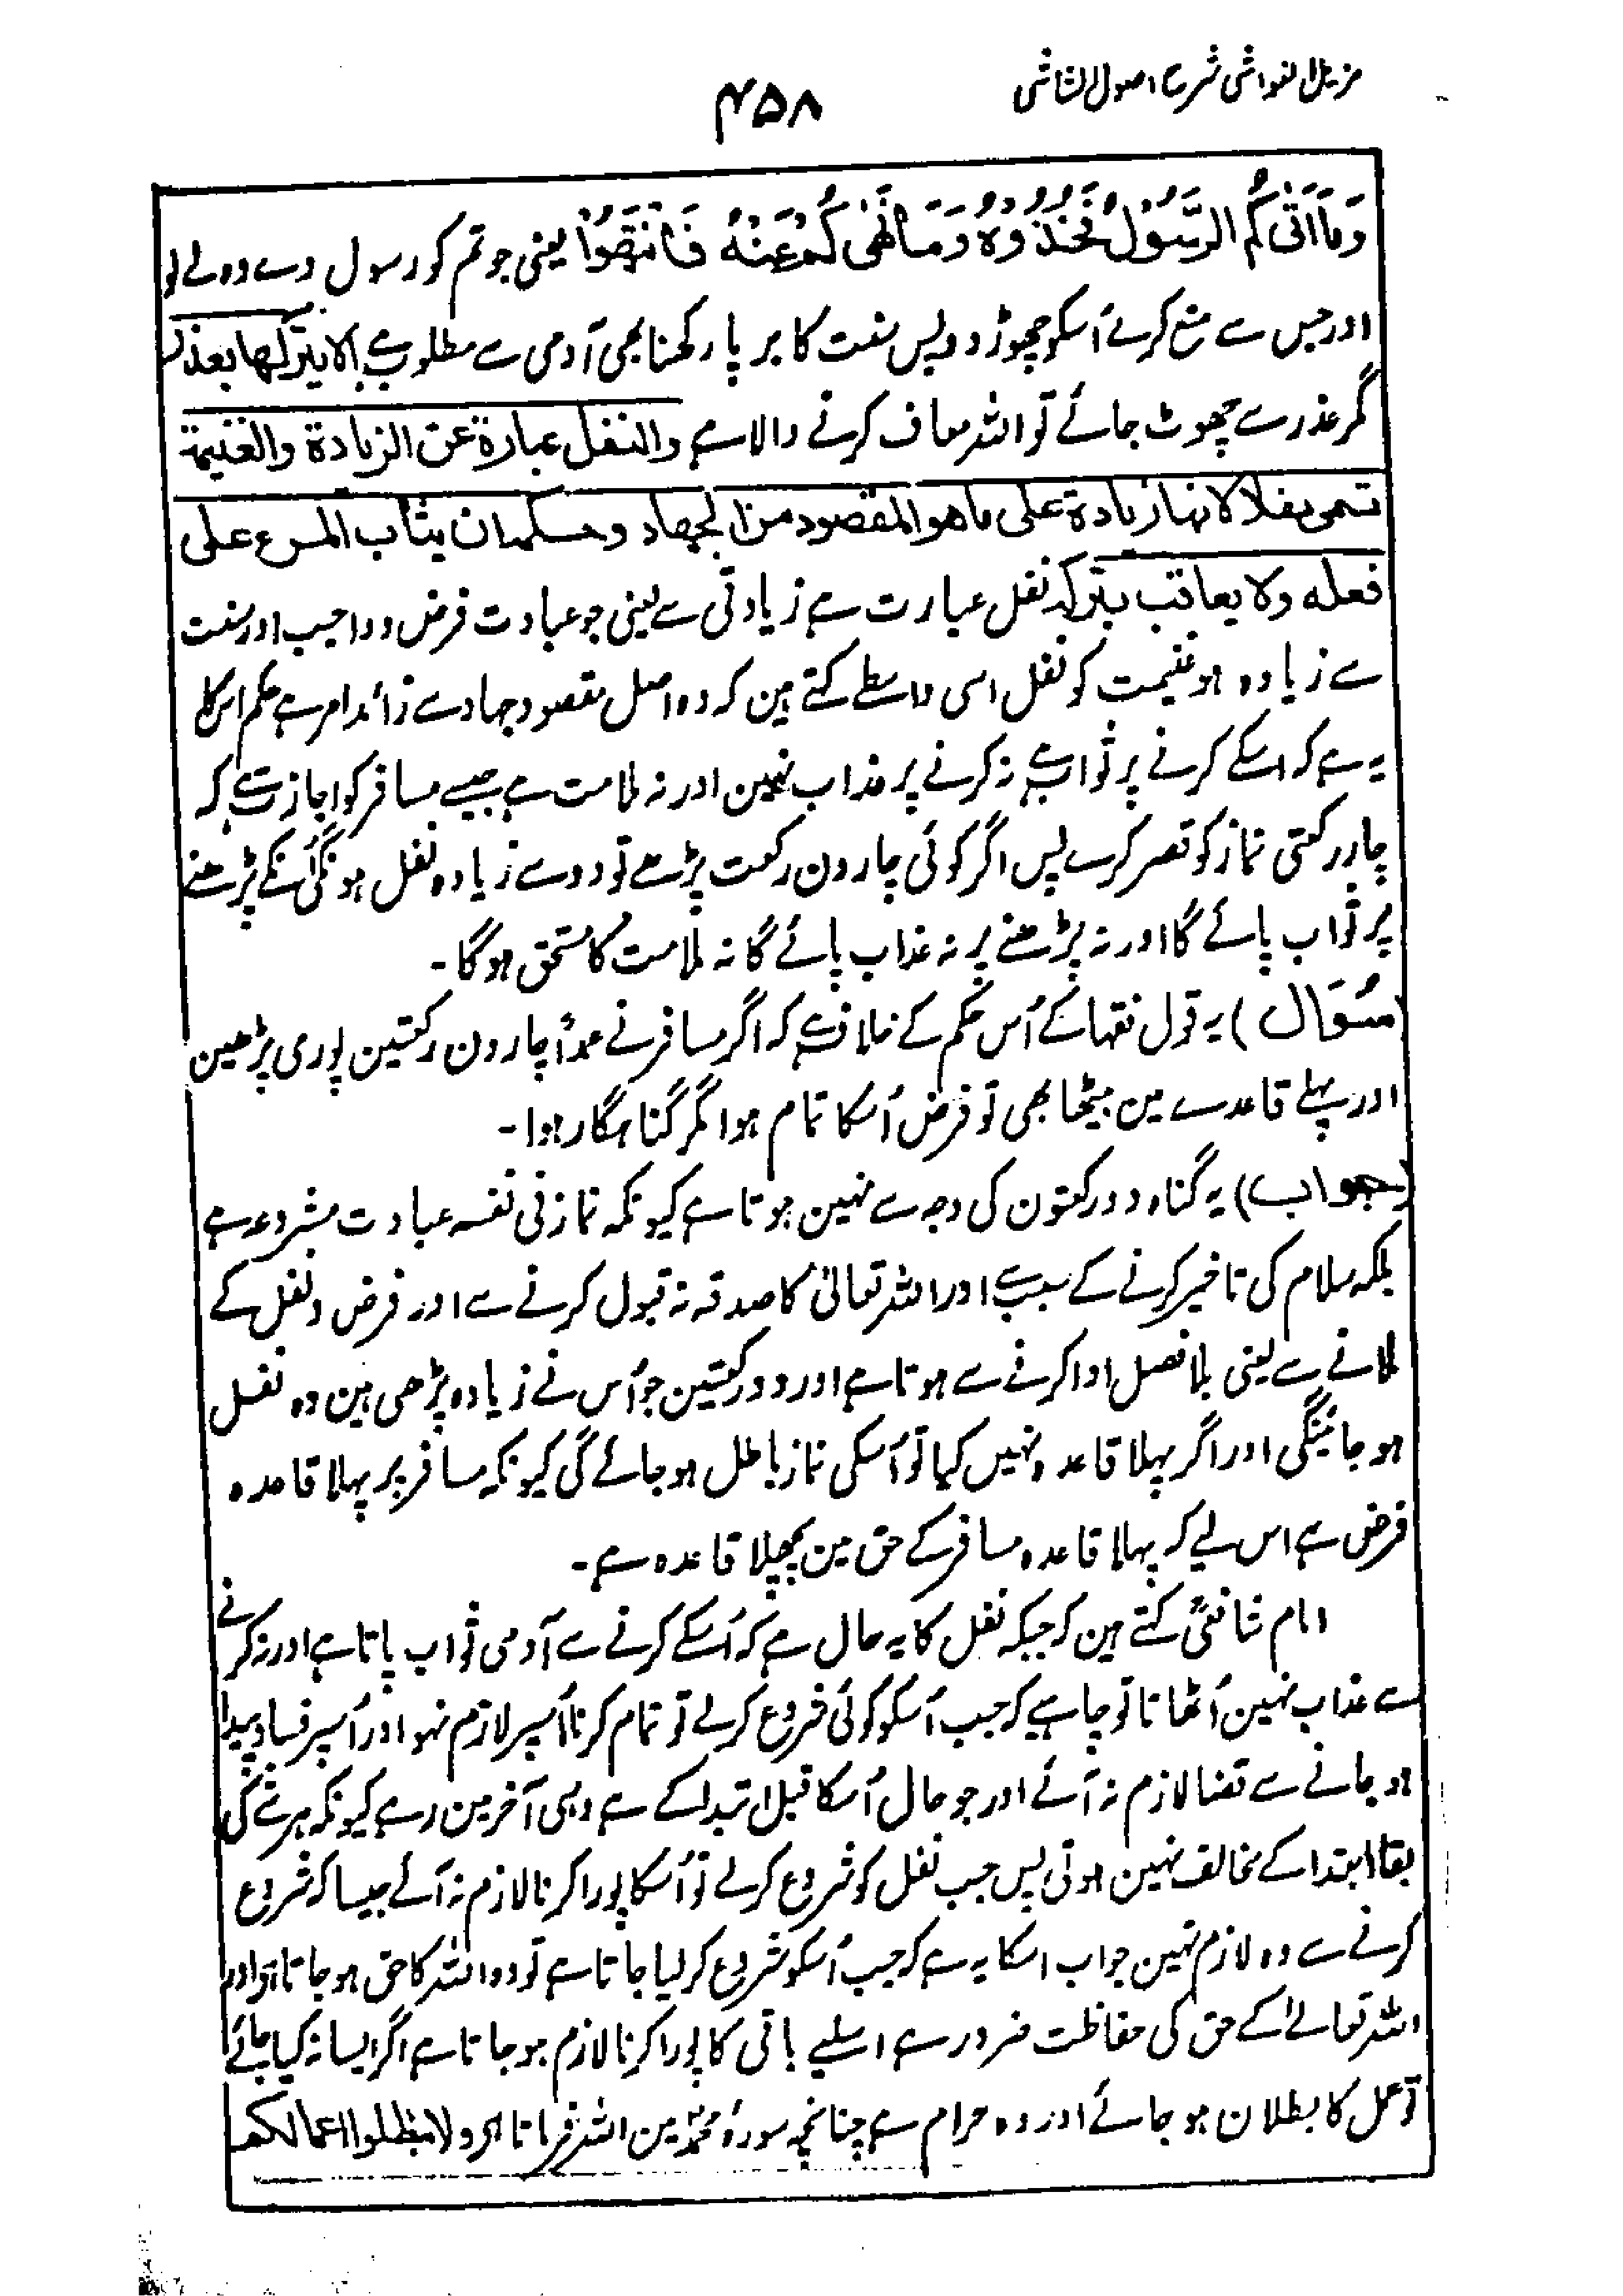 مزیل الغواشی شرح اصول الشاشی
۴۵۸
وَمَآ اٰتٰىكُمُ الرَّسُوْلُ فَخُذُوْهُ وَمَا نَهٰىكُمْ عَنْهُ فَانْتَهُوْا یعنی جو تم کو رسول دے وہ لے لو
اور جس سے منع کرے اُسکو چھوڑ دو پس سنت کا برپا رکھنا بھی آدمی سے مطلوب ہے الا یترکها بعذر
مگر عذر سے چھوٹ جائے تو اللہ معاف کرنے والا ہے والنفل عبارة عن الزیادة والغنیمة
تسمی نفلا لانها زیادة علی ما هو المقصود من الجهاد وحکمه ان یثاب المرء علی
فعله ولا یعاقب بترکه نفل عبارت ہے زیادتی سے یعنی جو عبادت فرض و واجب اور سنت
سے زیادہ ہو غنیمت کو نفل اسی واسطے کہتے ہین کہ وہ اصل مقصود جہاد سے زائد امر ہے حکم اس کا
یہ ہے کہ اسکے کرنے پر ثواب ہے نہ کرنے پر عذاب نہین اور نہ ملامت ہے جیسے مسافر کو اجازت ہے کہ
چار رکعتی نماز کو قصر کرے پس اگر کوئی چارون رکعت پڑھے تو دو سے زیادہ نفل ہونگی اُنکے پڑھنے
پر ثواب پائے گا اور نہ پڑھنے پر نہ عذاب پائے گا نہ ملامت کا مستحق ہوگا۔
(سُوَال) یہ قول فقہا کے اُس حکم کے خلاف ہے کہ اگر مسافر نے عمداً چارون رکعتین پوری پڑھین
اور پہلے قاعدے مین بیٹھا بھی تو فرض اُسکا تمام ہوا مگر گناہگار ہوا۔
(جواب) یہ گناہ دو رکعتون کی وجہ سے نہین ہوتا ہے کیونکہ نماز فی نفسہ عبادت مشروعہ ہے
بلکہ سلام کی تاخیر کرنے کے سبب ہے اور اللہ تعالیٰ کا صدقہ نہ قبول کرنے سے اور فرض و نفل کے
ملانے سے یعنی بلا فصل ادا کرنے سے ہوتا ہے اور دو رکعتین جو اُس نے زیادہ پڑھی ہین وہ نفل
ہو جائینگی اور اگر پہلا قاعدہ نہیں کیا تو اُسکی نماز باطل ہو جائے گی کیونکہ مسافر پر پہلا قاعدہ
فرض ہے اس لیے کہ پہلا قاعدہ مسافر کے حق مین پچھلا قاعدہ ہے۔
امام شافعیؒ کہتے ہین کہ جبکہ نفل کا یہ حال ہے کہ اُسکے کرنے سے آدمی ثواب پاتا ہے اور نہ کرنے
سے عذاب نہین اُٹھاتا تو چاہیے کہ جب اُسکو کوئی شروع کرلے تو تمام کرنا اُسپر لازم نہو اور اُسپر فساد پیدا
ہو جانے سے قضا لازم نہ آئے اور جو حال اُسکا قبل ابتدا کے ہے وہی آخر مین رہے کیونکہ ہر شے کی
بقا ابتدا کے مخالف نہین ہوتی پس جب نفل کو شروع کرلے تو اُسکا پورا کرنا لازم نہ آئے جیسا کہ شروع
کرنے سے وہ لازم نہین جواب اسکا یہ ہے کہ جب اُسکو شروع کر لیا جاتا ہے تو وہ اللہ کا حق ہو جاتا ہے اور
اللہ تعالےٰ کے حق کی حفاظت ضرور ہے اسلیے باقی کا پورا کرنا لازم ہو جاتا ہے اگر ایسا نہ کیا جائے
تو عمل کا بطلان ہو جائے اور وہ حرام ہے چنانچہ سورۂ محمدؐ مین اللہ فرماتا ہے ولا تبطلوا اعمالکم